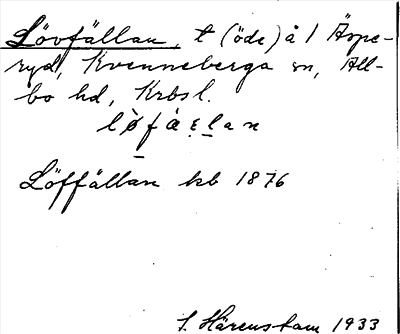 Lövfällan, t (öde) å 1 Äspe-
ryd, Kvenneberga sn, All-
bo hd, Krbsl.
løfælan
Löffällan kb 1876
S. Härenstam 1933